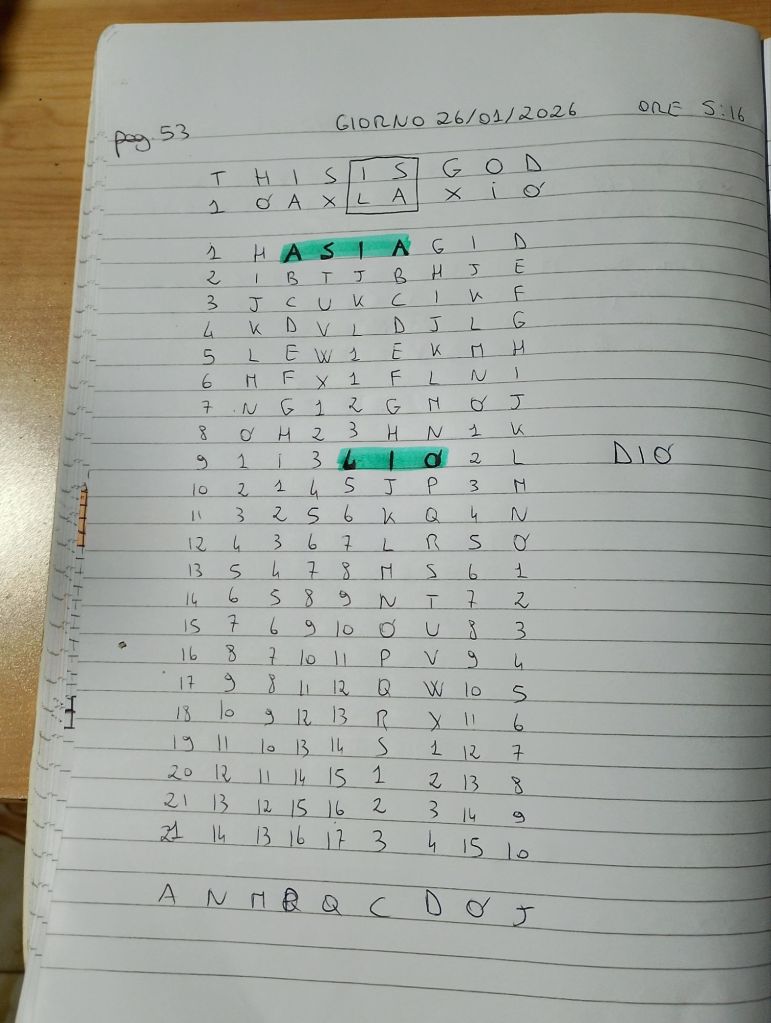 pag. 53
GIORNO 26/01/2026 ORE 5:16
T H I S I S G O D
1 O A X L A X i O
1 H A S I A G I D
2 I B T J B H J E
3 J C U K C I K F
4 K D V L D J L G
5 L E W 1 E K M H
6 M F X 1 F L N I
7 N G 1 2 G M O J
8 O H 2 3 H N 1 K
9 1 i 3 4 I O 2 L DIO
10 2 1 4 5 J P 3 M
11 3 2 5 6 K Q 4 N
12 4 3 6 7 L R 5 O
13 5 4 7 8 M S 6 1
14 6 5 8 9 N T 7 2
15 7 6 9 10 O U 8 3
16 8 7 10 11 P V 9 4
17 9 8 11 12 Q W 10 5
18 10 9 12 13 R X 11 6
19 11 10 13 14 S 1 12 7
20 12 11 14 15 1 2 13 8
21 13 12 15 16 2 3 14 9
21 14 13 16 17 3 4 15 10
A N M Q C D O J